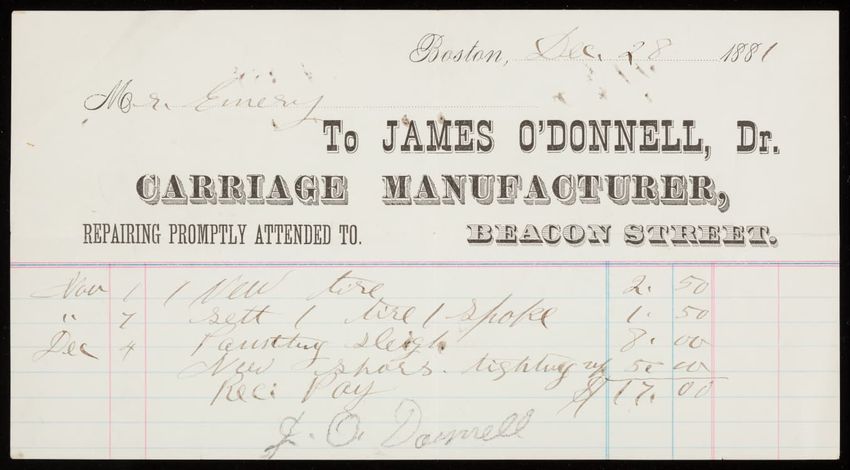 Boston, Dec. 28 1881
Mr. Emery
To JAMES O'DONNELL, Dr.
CARRIAGE MANUFACTURER,
REPAIRING PROMPTLY ATTENDED TO. BEACON STREET.
Nov 1 1 New tire 2. 50
" 7 sett 1 tire 1 spoke 1. 50
Dec 4 sleigh 8. 00
New shoes. tighting up 5. 00
Rec: Pay $17. 00
J. O. Donnell